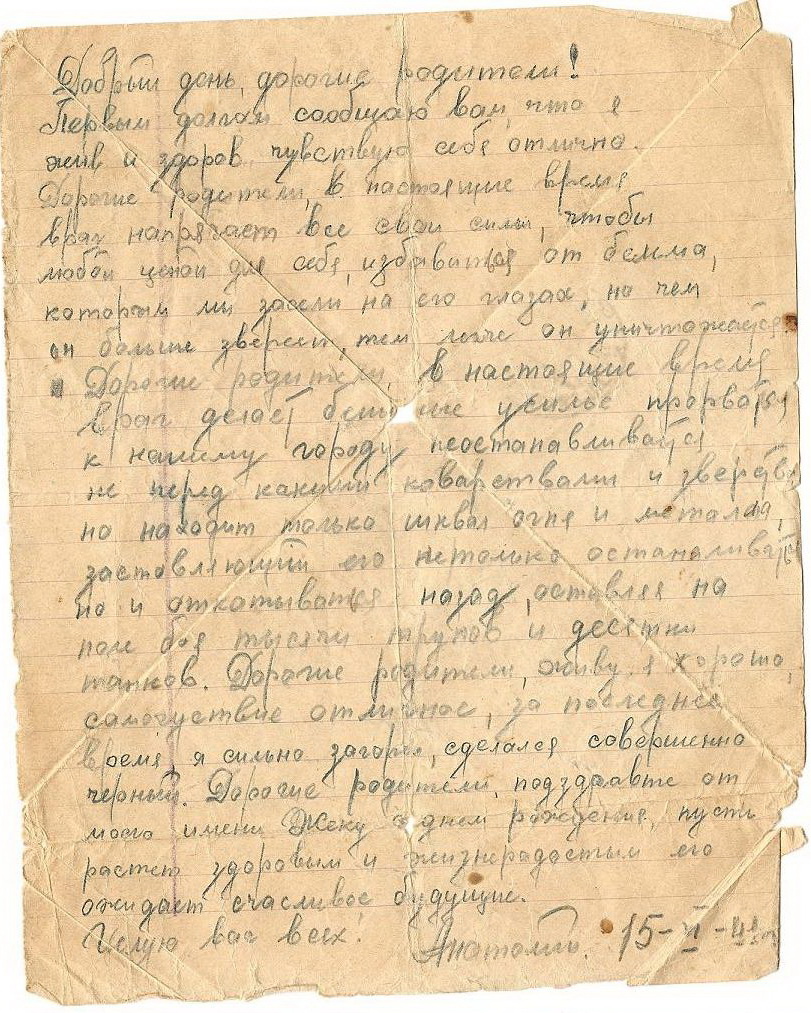 Добрый день, дорогие родители!
Первым долгом сообщаю вам, что я
жив и здоров, чувствую себя отлично.
Дорогие родители, в настоящие время
враг напрягает все свои силы, чтобы
любой ценой для себя, избавиться от бельма,
которым мы засели на его глазах, но чем
он больше звереет, тем легче он уничтожается
Дорогие родители, в настоящие время
враг делает бешеные усилье прорватся
к нашему городу неостанавливаятся
не перед какими коварствами и зверств
но находит только шквал огня и металла,
заставляющий его нетолько останаливатся
но и откатываться назад, оставляя на
поле боя тысячи трупов и десятки
танков. Дорогие родители, живу я хорошо,
самочуствие отличное, за последнее
время я сильно загорел, сделался совершенно
черный. Дорогие родители, подздравте от
моего имени Жеку з днем рождения, пусть
растет здоровым и жизнерадостым его
ожидает счасливое будущие.
Целую вас всех! Анатолий. 15-VI-